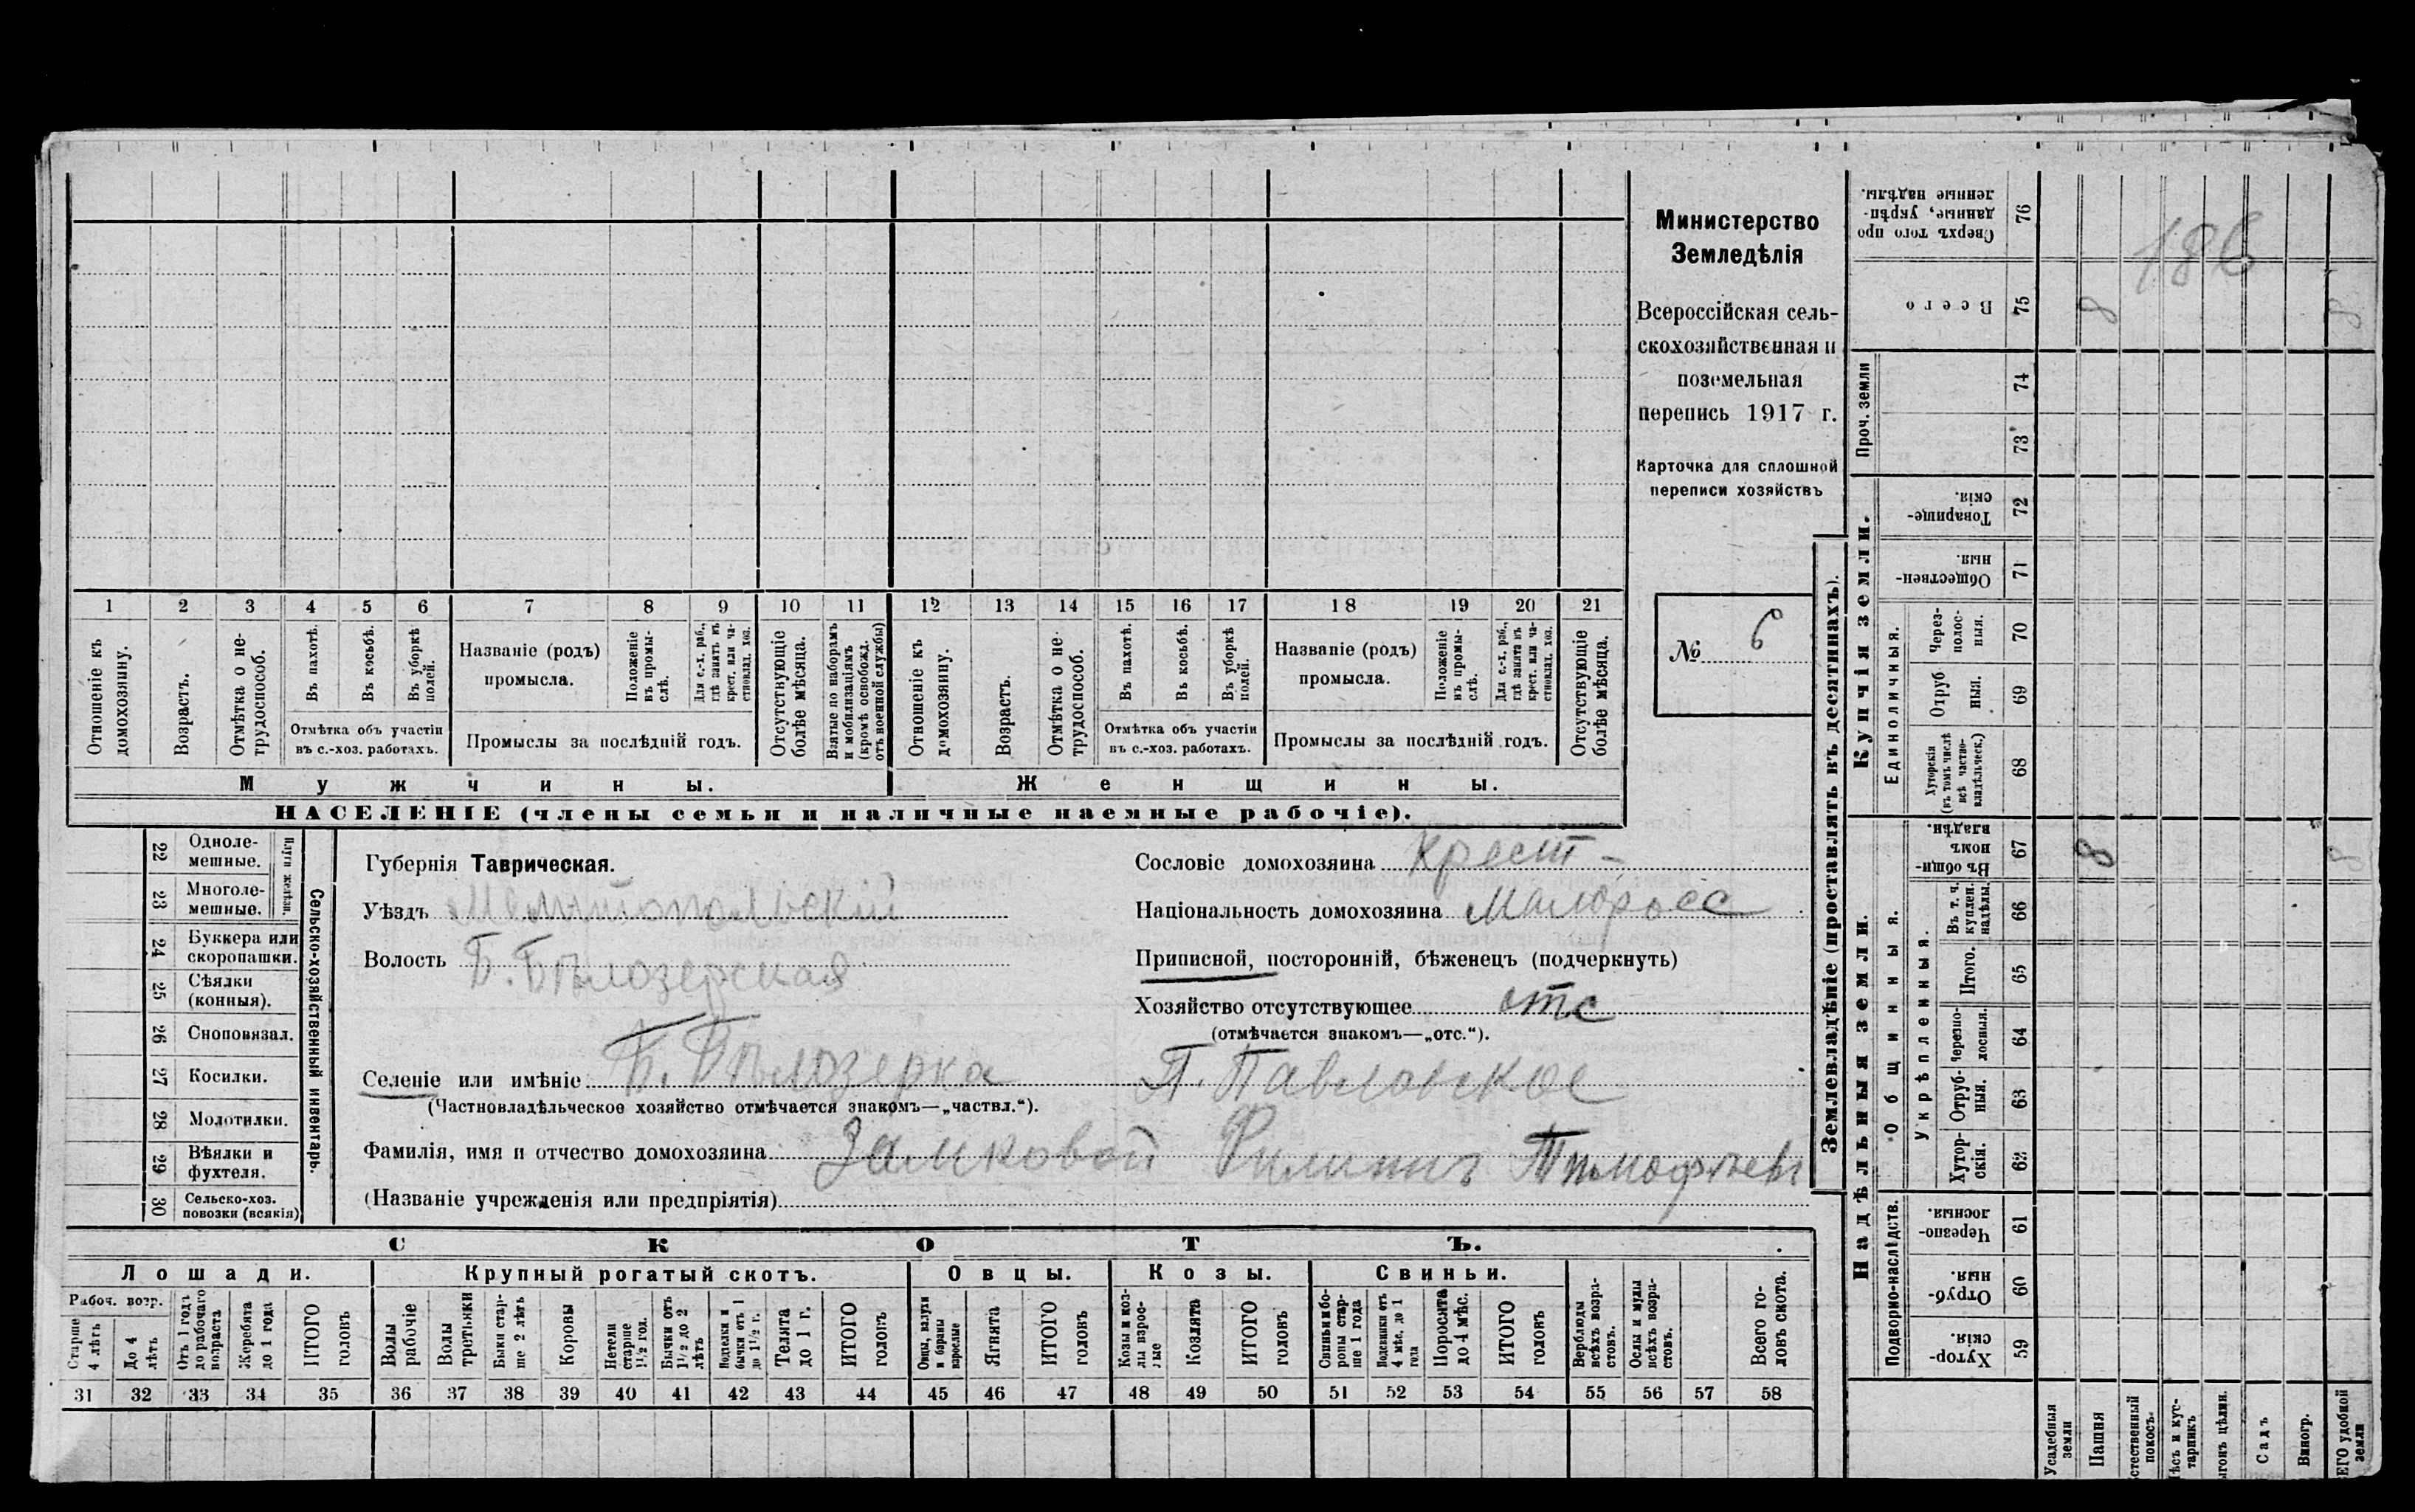 Министерство
Земледѣлія
Всероссійская сель-
скохозяйственная и
поземельная
перепись 1917 г.
Карточка для сплошной
переписи хозяйствъ
№ 6
1 2 3 4 5 6 7 8 9 10 11 12 13 14 15 16 17 18 19 20 21
Отношеніе къ домохозяину.
Возрастъ.
Отмѣтка о не-трудоспособ.
Въ пахотѣ.
Въ косьбѣ.
Въ уборкѣ полей.
Отмѣтка объ участіи
въ с.-хоз. работахъ.
Названіе (родъ)
промысла.
Положеніе въ промы-слѣ.
Для с.-х. раб., гдѣ занятъ въ крест. или ча-стновлад. хоз.
Промыслы за послѣдній годъ.
Отсутствующіе болѣе мѣсяца.
Взятые по наборамъ и мобилизаціямъ (кромѣ освобожд. отъ военной службы)
Отношеніе къ домохозяину.
Возрастъ.
Отмѣтка о не-трудоспособ.
Въ пахотѣ.
Въ косьбѣ.
Въ уборкѣ полей.
Отмѣтка объ участіи
въ с.-хоз. работахъ.
Названіе (родъ)
промысла.
Положеніе въ промы-слѣ.
Для с.-х. раб., гдѣ занята въ крест. или ча-стновлад. хоз.
Промыслы за послѣдній годъ.
Отсутствующіе болѣе мѣсяца.
Мужчины. Женщины.
НАСЕЛЕНІЕ (члены семьи и наличные наемные рабочіе).
22 Одноле-мешные.
23 Многоле-мешные.
Плуги желѣзн.
24 Буккера или скоропашки.
25 Сѣялки (конныя).
26 Сноповязал.
27 Косилки.
28 Молотилки.
29 Вѣялки и фухтеля.
30 Сельско-хоз. повозки (всякія)
Сельско-хозяйственный инвентарь.
Губернія Таврическая.
Уѣздъ Мелитопольскій
Волость Б. Бѣлозерская
Селеніе или имѣніе Б. Бѣлозерка П. Павловское
(Частновладѣльческое хозяйство отмѣчается знакомъ—„частвл.“).
Фамилія, имя и отчество домохозяина Замковой Филиппъ Тимофѣев
(Названіе учрежденія или предпріятія)
Сословіе домохозяина Крест-
Національность домохозяина Малоросс
Приписной, посторонній, бѣженецъ (подчеркнуть)
Хозяйство отсутствующее отс
(отмѣчается знакомъ—„отс.“).
СКОТЪ.
Лошади. Крупный рогатый скотъ. Овцы. Козы. Свиньи.
Рабоч. возр.
Старше 4 лѣтъ
До 4 лѣтъ
Отъ 1 годъ до рабочаго возраста
Жеребята до 1 года
ИТОГО головъ
Волы рабочіе
Волы третьяки
Быки стар-ше 2 лѣтъ
Коровы
Нетели старше 1½ год.
Бычки отъ 1½ до 2 лѣтъ
Нетелки и бычки отъ 1 до 1½ г.
Телята до 1 г.
ИТОГО головъ
Овцы, валухи и бараны взрослые
Ягнята
ИТОГО головъ
Козы и коз-лы взрос-лые
Козлята
ИТОГО головъ
Свиньи и бо-ровы стар-ше 1 года
Подсвинки отъ 4 мѣс. до 1 года
Поросята до 4 мѣс.
ИТОГО головъ
Верблюды всѣхъ возра-стовъ.
Ослы и мулы всѣхъ возра-стовъ.
Всего го-ловъ скота.
31 32 33 34 35 36 37 38 39 40 41 42 43 44 45 46 47 48 49 50 51 52 53 54 55 56 57 58
Землевладѣніе (проставлять въ десятинахъ).
Купчія земли.
Надѣльныя земли.
Сверхъ того про данные, укрѣп-ленные надѣлы. 76
186
Всего 75 8 8
Проч. земли 74
73
Товарище-скія. 72
Обществен-ныя. 71
Единоличныя.
Через-полос-ныя. 70
Отруб ныя. 69
Хуторскія (въ томъ числѣ всѣ частно-владѣльческ.) 68
Общинныя.
Въ общи-номъ владѣн. 67 8 8
Укрѣпленныя.
Въ т. ч. куплен. надѣлы. 66
Итого. 65
Черезпо-лосныя. 64
Отруб-ныя. 63
Хутор-скія. 62
Подворно-наслѣдств.
Черезпо-лосныя. 61
Отруб-ныя. 60
Хутор-скія. 59
Усадебныя земли
Пашня
стественный покосъ
Лѣсъ и кус-тарникъ
ыгонъ цѣлин.
Садъ
Виногр.
ЕГО удобной земли